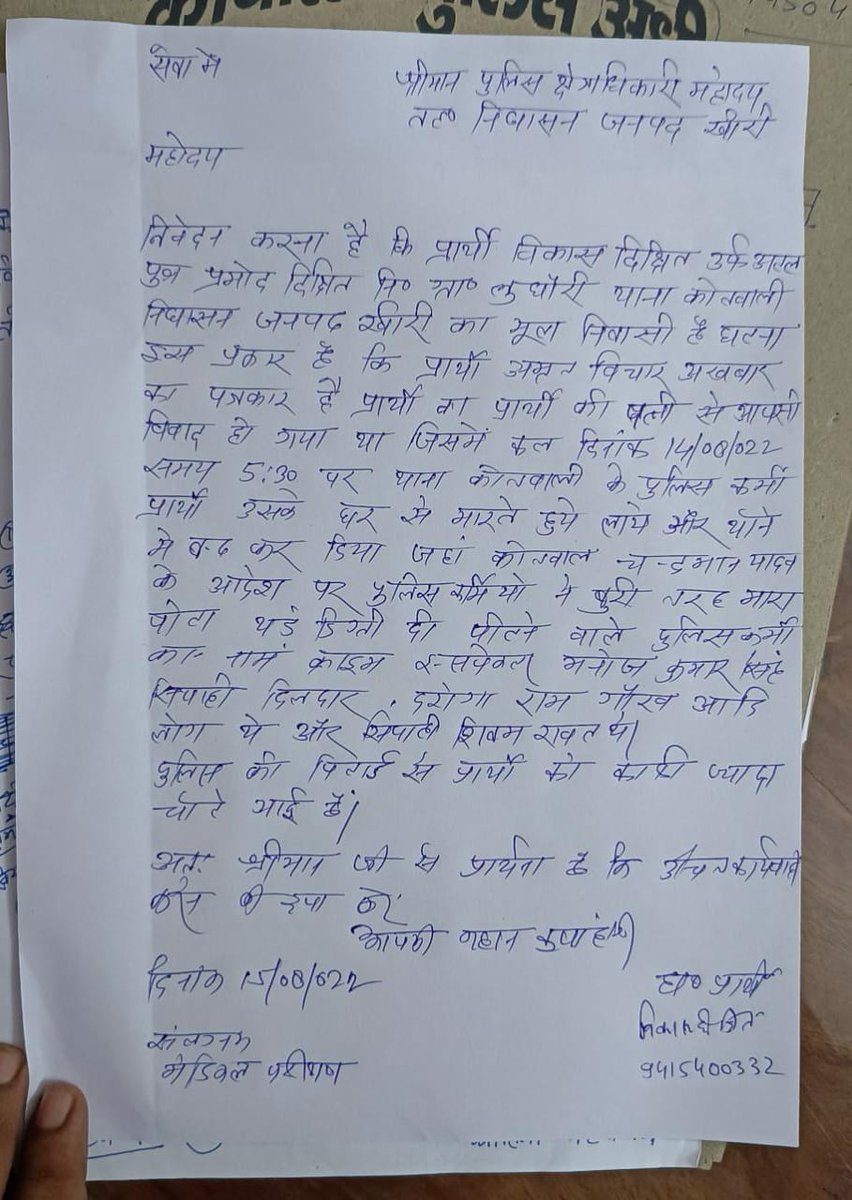 सेवा में
श्रीमान पुलिस क्षेत्राधिकारी महोदय
तह० निघासन जनपद खीरी
महोदय
निवेदन करना है कि प्रार्थी विकास दिक्षित उर्फ अतुल
पुत्र प्रमोद दिक्षित नि० ग्रा० लुधौरी थाना कोतवाली
निघासन जनपद खीरी का मूल निवासी है घटना
इस प्रकार है कि प्रार्थी अमृत विचार अखबार
का पत्रकार है प्रार्थी का प्रार्थी की पत्नी से आपसी
विवाद हो गया था जिसमें कल दिनांक 14/08/022
समय 5:30 पर थाना कोतवाली के पुलिस कर्मी
प्रार्थी उसके घर से मारते हुये लाये और थाने
मे बन्द कर दिया जहां कोतवाल चन्द्रभान यादव
के आदेश पर पुलिस कर्मियो ने बुरी तरह मारा
पीटा थर्ड डिग्री दी पीटने वाले पुलिस कर्मी
का नाम क्राइम इन्सपेक्टर मनोज कुमार सिंह
सिपाही दिलदार, दरोगा राम गौरव आदि
लोग थे और सिपाही शिवम रावत थे।
पुलिस की पिटाई से प्रार्थी को काफी ज्यादा
चोटे आई है।
अतः श्रीमान जी से प्रार्थना है कि उचित कार्यवाही
करने की कृपा करें
आपकी महान कृपा होगी
दिनांक 15/08/022
ह० प्रार्थी
विकास दीक्षित
9415400332
संलग्नक
मेडिकल परीक्षण